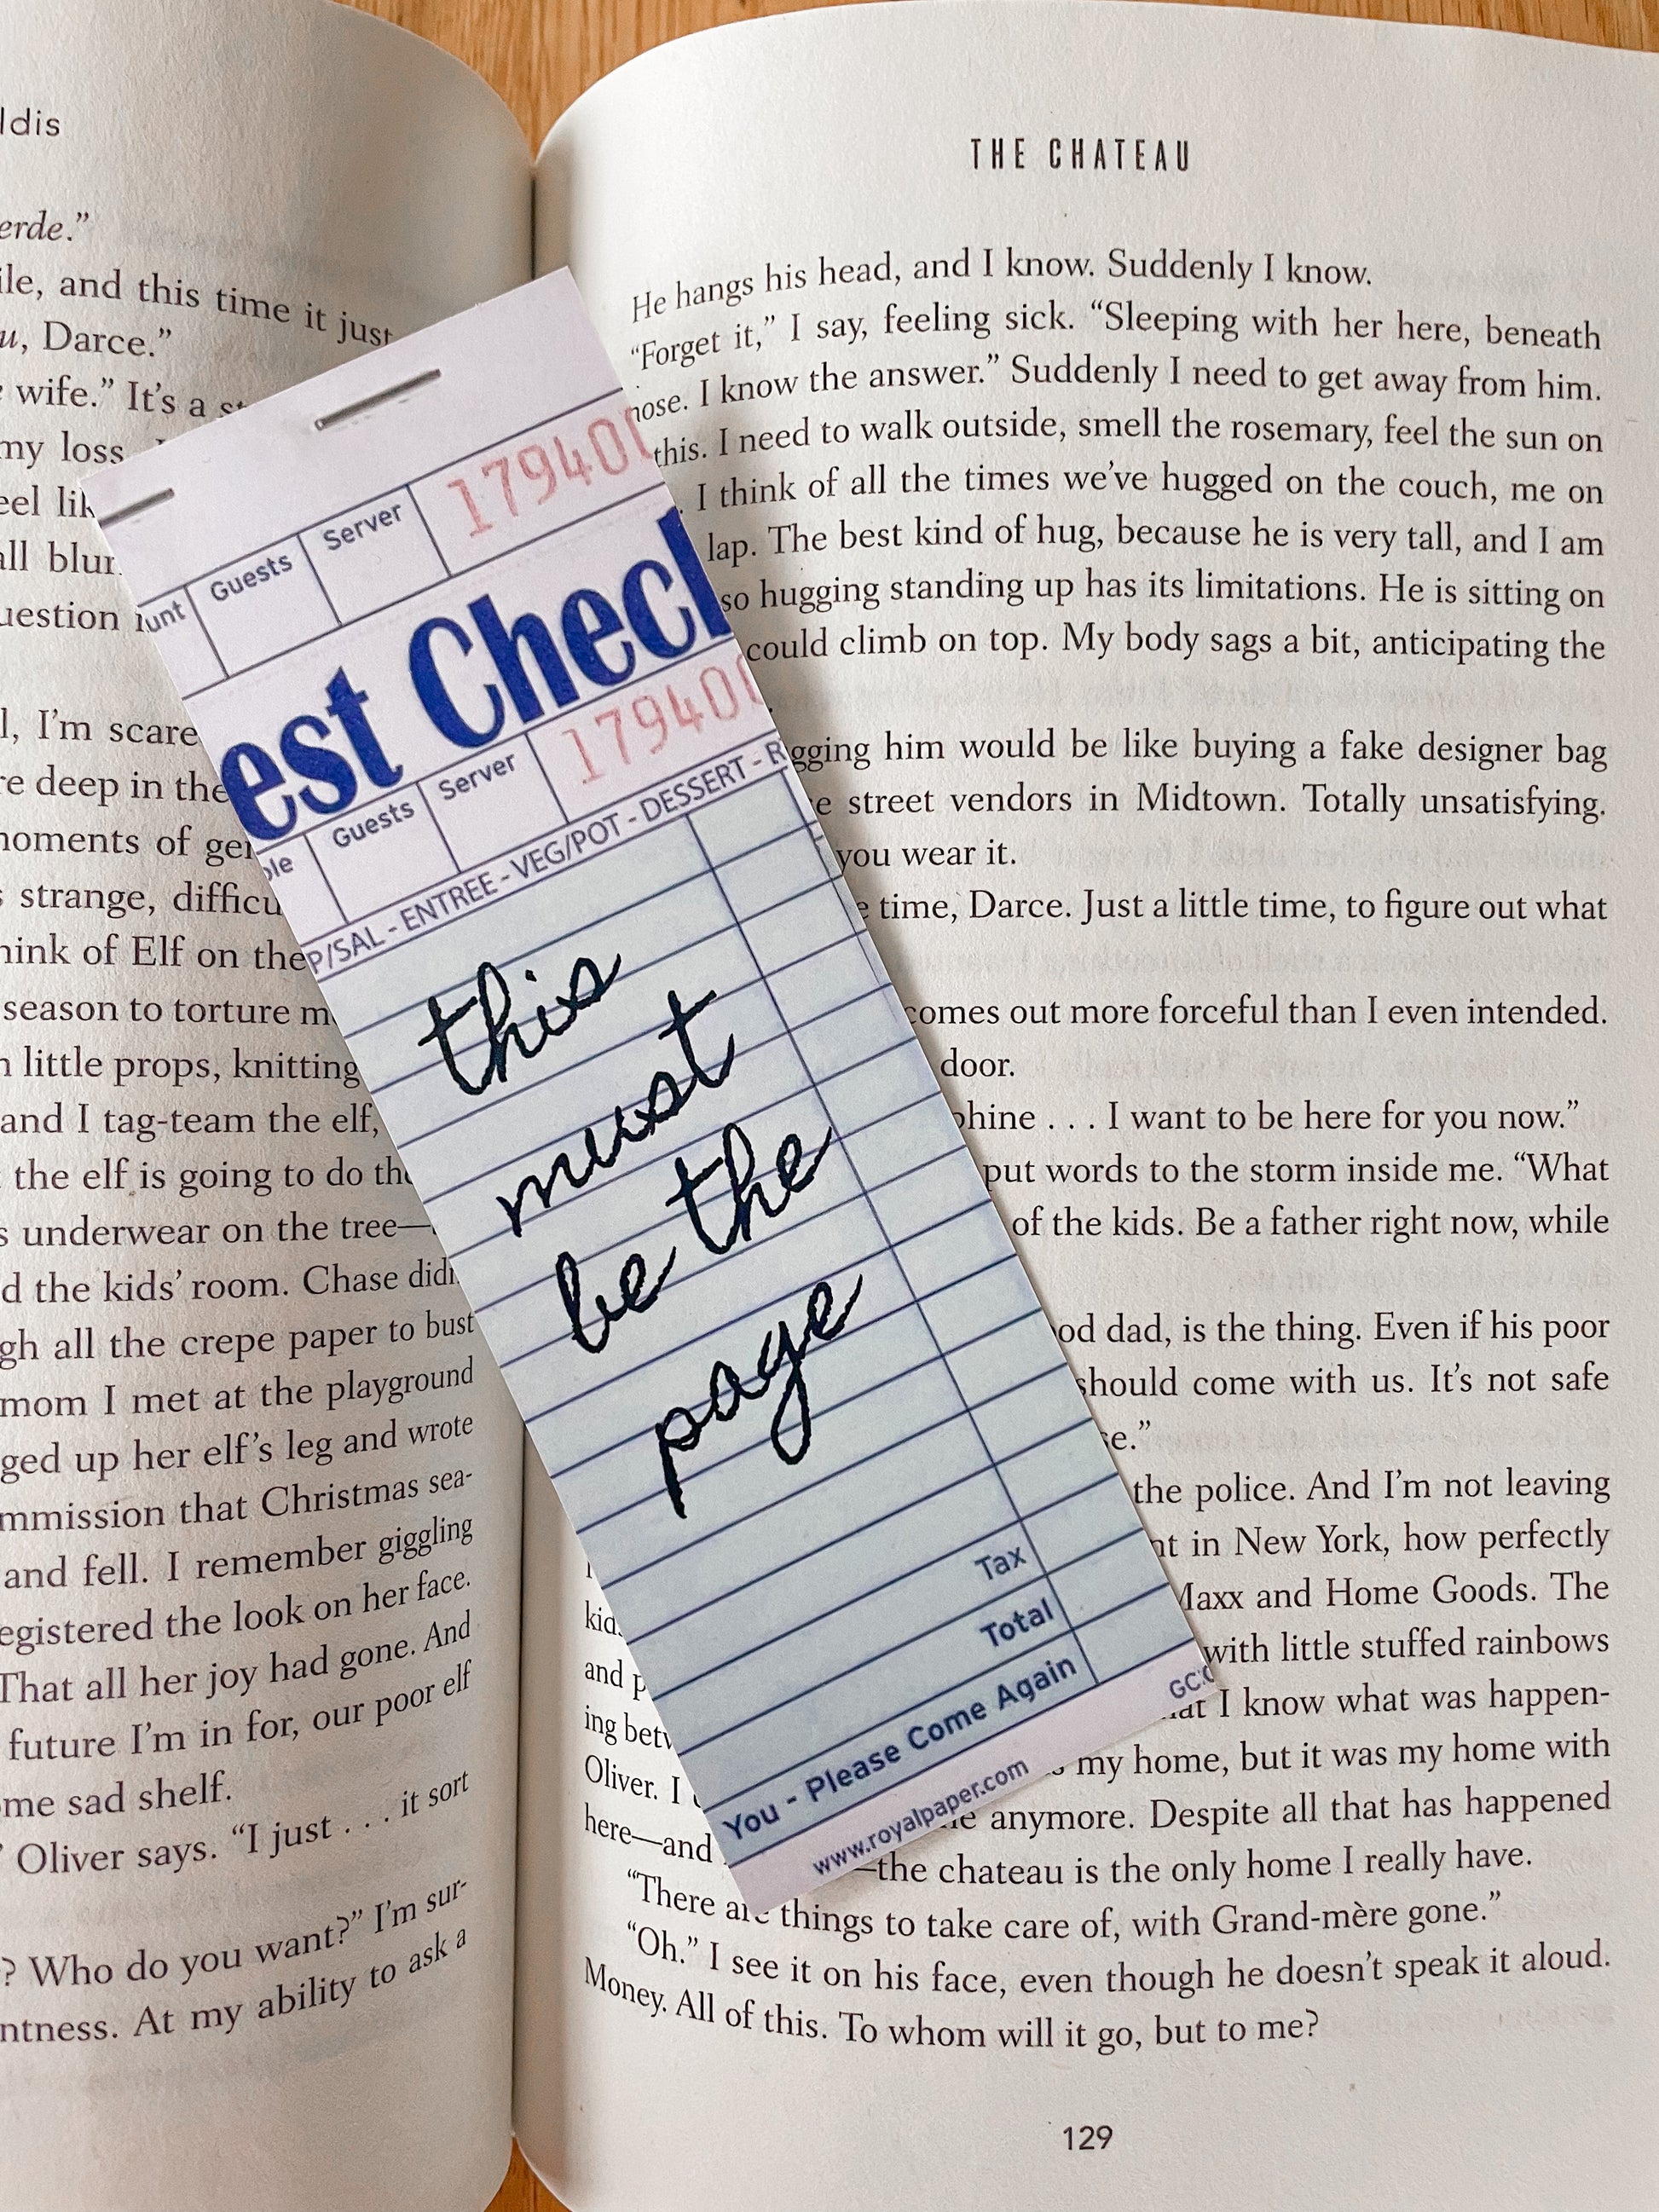 ldis
erde.”
ile, and this time it just
u, Darce.”
wife.” It’s a
my loss.
eel
all
uestion
l, I’m
re deep in the
moments of
strange,
hink of Elf on the
season to torture
little props, knitting
and I tag-team the elf,
the elf is going to do
underwear on the tree—
d the kids’ room. Chase
gh all the crepe paper to bust
mom I met at the playground
ged up her elf’s leg and wrote
mmission that Christmas sea-
and fell. I remember giggling
egistered the look on her face.
That all her joy had gone. And
future I’m in for, our poor elf
ome sad shelf.
Oliver says. “I just . . . it sort
? Who do you want?” I’m sur-
ntness. At my ability to ask a
Guests Server 17940
est Check
Guests Server 17940
P/SAL - ENTREE - VEG/POT - DESSERT -
this
must
be the
page
Tax
Total
You - Please Come Again
www.royalpaper.com
THE CHATEAU
He hangs his head, and I know. Suddenly I know.
“Forget it,” I say, feeling sick. “Sleeping with her here, beneath
nose. I know the answer.” Suddenly I need to get away from him.
this. I need to walk outside, smell the rosemary, feel the sun on
. I think of all the times we’ve hugged on the couch, me on
lap. The best kind of hug, because he is very tall, and I am
so hugging standing up has its limitations. He is sitting on
could climb on top. My body sags a bit, anticipating the
gging him would be like buying a fake designer bag
e street vendors in Midtown. Totally unsatisfying.
you wear it.
e time, Darce. Just a little time, to figure out what
comes out more forceful than I even intended.
door.
phine . . . I want to be here for you now.”
put words to the storm inside me. “What
of the kids. Be a father right now, while
od dad, is the thing. Even if his poor
should come with us. It’s not safe
se.”
the police. And I’m not leaving
in New York, how perfectly
Maxx and Home Goods. The
with little stuffed rainbows
and I know what was happen-
ing my home, but it was my home with
Oliver. I anymore. Despite all that has happened
here—and —the chateau is the only home I really have.
“There are things to take care of, with Grand-mère gone.”
“Oh.” I see it on his face, even though he doesn’t speak it aloud.
Money. All of this. To whom will it go, but to me?
129